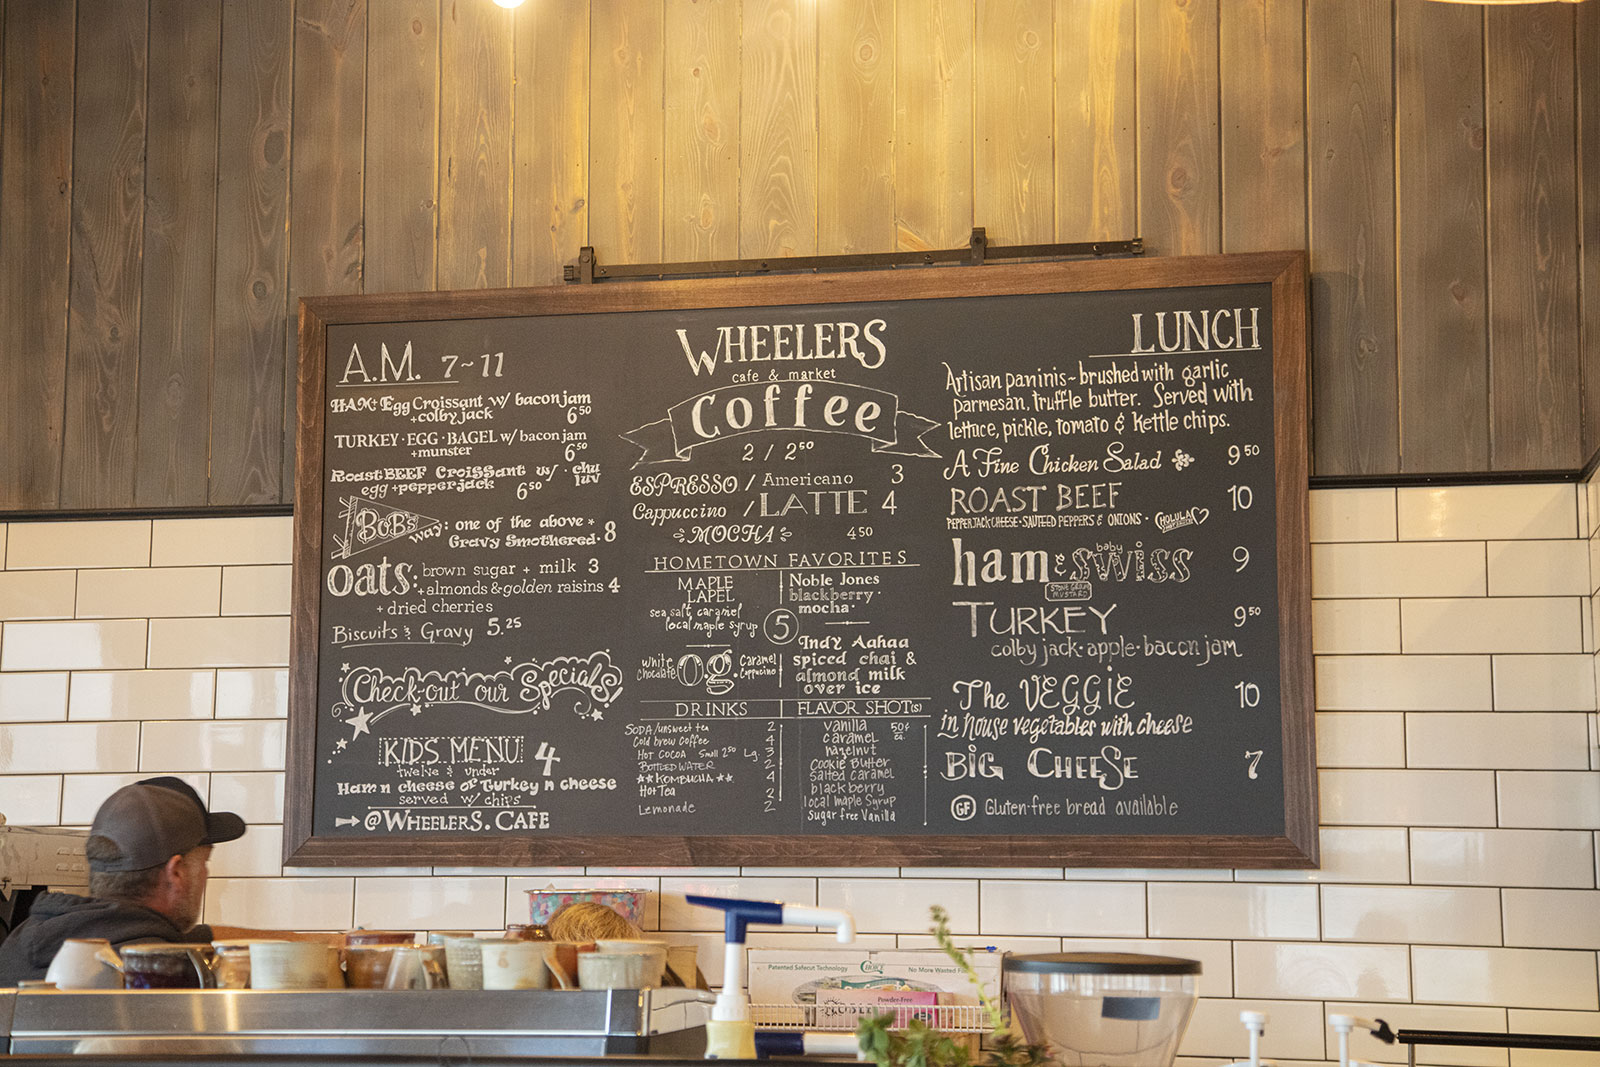 A.M. 7~11
HAM + Egg Croissant w/ bacon jam
+colby jack 6⁵⁰
TURKEY·EGG·BAGEL w/ bacon jam
+munster 6⁵⁰
Roast BEEF Croissant w/ · chu luv
egg +pepperjack 6⁵⁰
BOB'S way: one of the above *
Gravy Smothered· 8
Oats: brown sugar + milk 3
+almonds & golden raisins 4
+ dried cherries
Biscuits & Gravy 5.25
Check-out our Specials!
KIDS MENU 4
twelve & under
Ham n cheese or Turkey n cheese
served w/ chips
@WHEELERS.CAFE
WHEELERS
cafe & market
Coffee
2 / 2⁵⁰
ESPRESSO / Americano 3
Cappuccino / LATTE 4
MOCHA 4⁵⁰
HOMETOWN FAVORITES
MAPLE
LAPEL
sea salt, caramel
local maple syrup
5
Noble Jones
blackberry·
mocha·
White Chocolate Og. Caramel Cappucino
Indy Aahaa
spiced chai &
almond milk
over ice
DRINKS
SODA/unsweet tea 2
Cold brew coffee 4
HOT COCOA Small 2⁵⁰ Lg. 3
BOTTLED WATER 2
**KOMBUCHA** 4
Hot Tea 2
Lemonade 2
FLAVOR SHOT(S)
vanilla 50¢ ea.
caramel
hazelnut
Cookie Butter
Salted Caramel
blackberry
local Maple Syrup
Sugar free Vanilla
LUNCH
Artisan paninis~brushed with garlic
parmesan, truffle butter. Served with
lettuce, pickle, tomato & Kettle chips.
A Fine Chicken Salad 9⁵⁰
ROAST BEEF 10
PEPPERJACK CHEESE·SAUTEED PEPPERS & ONIONS· CHOLULA
ham & baby SWISS 9
STONE GROUND MUSTARD
TURKEY 9⁵⁰
colby jack·apple·bacon jam
The VEGGIE 10
in house vegetables with cheese
BIG CHEESE 7
GF Gluten-free bread available
Patented Safecut Technology
CHOICE
No More Wasted
Powder-Free